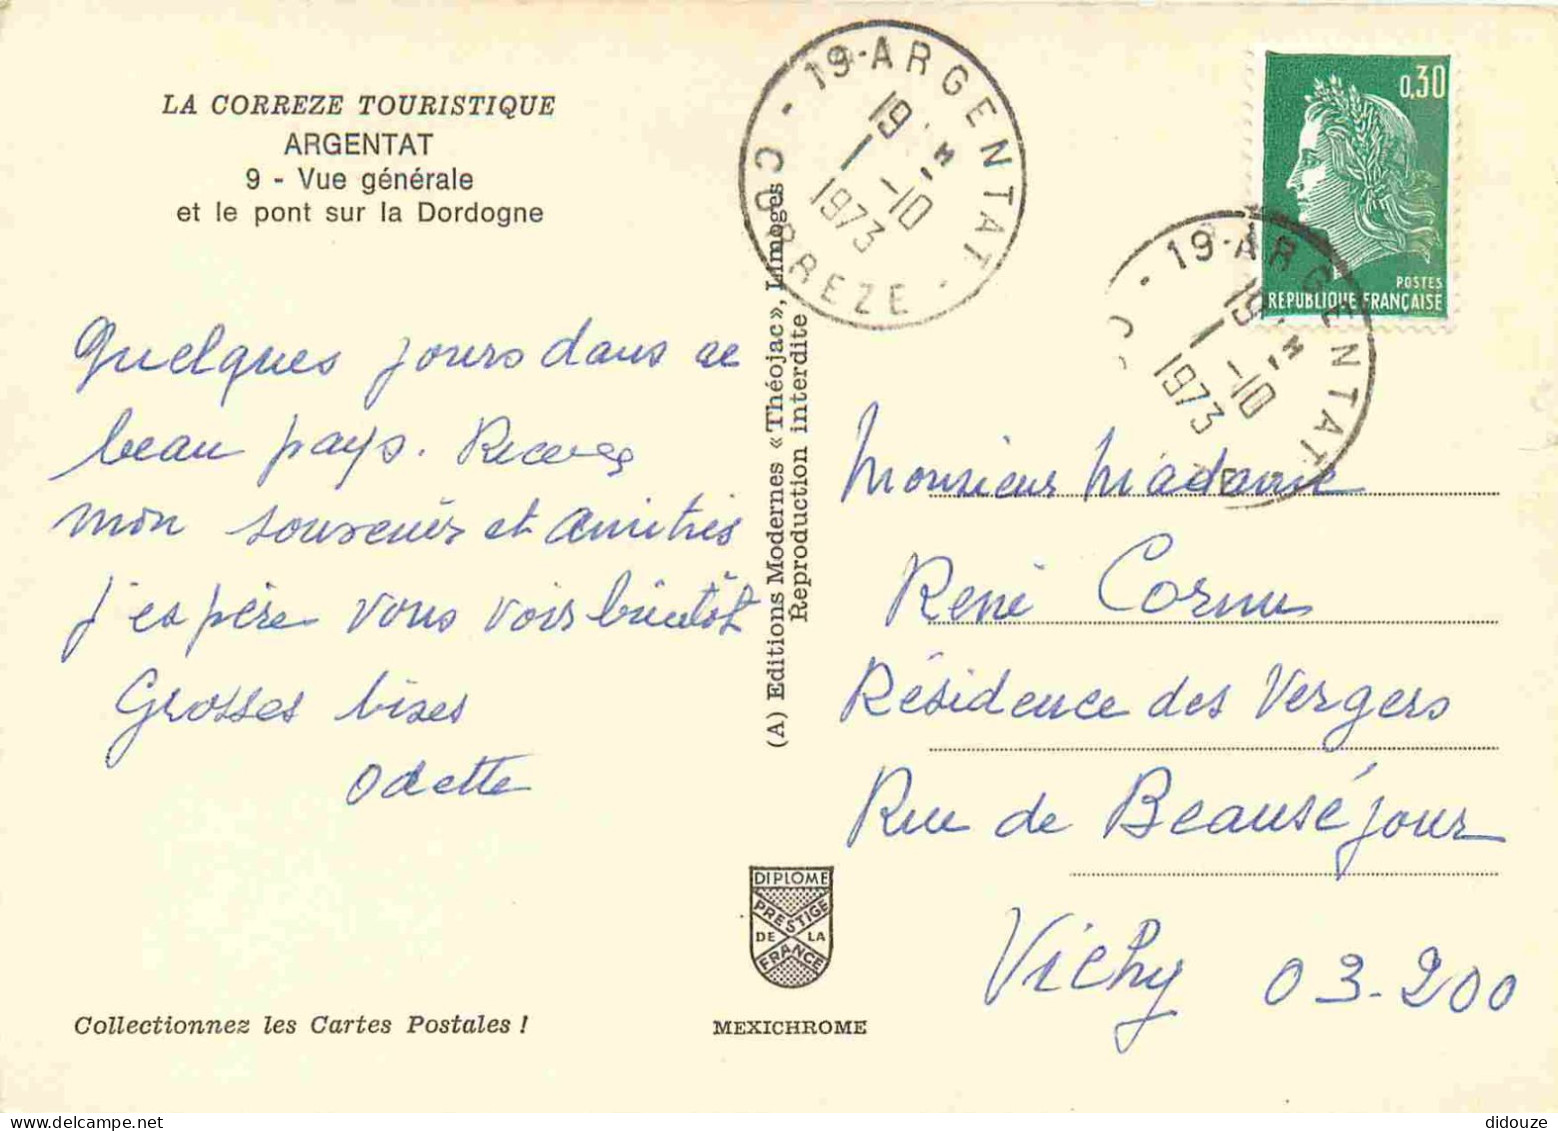 LA CORREZE TOURISTIQUE
ARGENTAT
9 - Vue générale
et le pont sur la Dordogne
Quelques jours dans ce
beau pays. Recevez
mon souvenir et amitiés
J'espère vous voir bientôt
Grosses bises
Odette
Collectionnez les Cartes Postales !
(A) Editions Modernes «Théojac», Limoges
Reproduction interdite
DIPLOME
PRESTIGE
DE LA
FRANCE
MEXICHROME
19-ARGENTAT
CORREZE
19 H
1 -10
1973
0,30
POSTES
REPUBLIQUE FRANÇAISE
19-ARGENTAT
19 H
1 -10
1973
Monsieur Madame
René Cornu
Résidence des Vergers
Rue de Beauséjour
Vichy 03-200
didouze